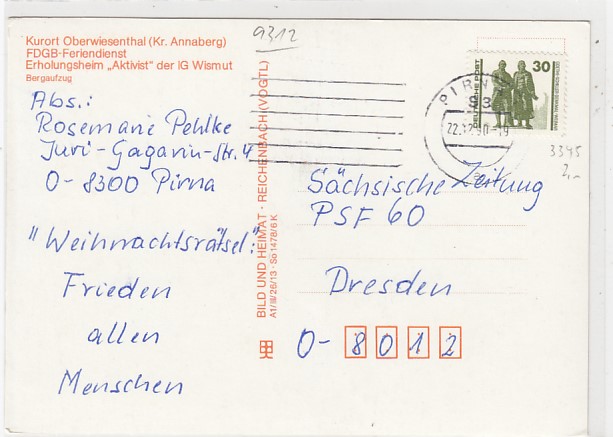 9312
Kurort Oberwiesenthal (Kr. Annaberg)
FDGB-Feriendienst
Erholungsheim „Aktivist“ der IG Wismut
Bergaufzug
Abs.:
Rosemarie Pehlke
Juri-Gagarin-Str. 4
O-8300 Pirna
"Weihnachtsrätsel":
Frieden
allen
Menschen
BILD UND HEIMAT · REICHENBACH (VOGTL)
A1/III/26/13 · So 1478/6 K
PIRN
22.12.90-19
DEUTSCHE POST
30
3345
2,-
Sächsische Zeitung
PSF 60
Dresden
O-8012